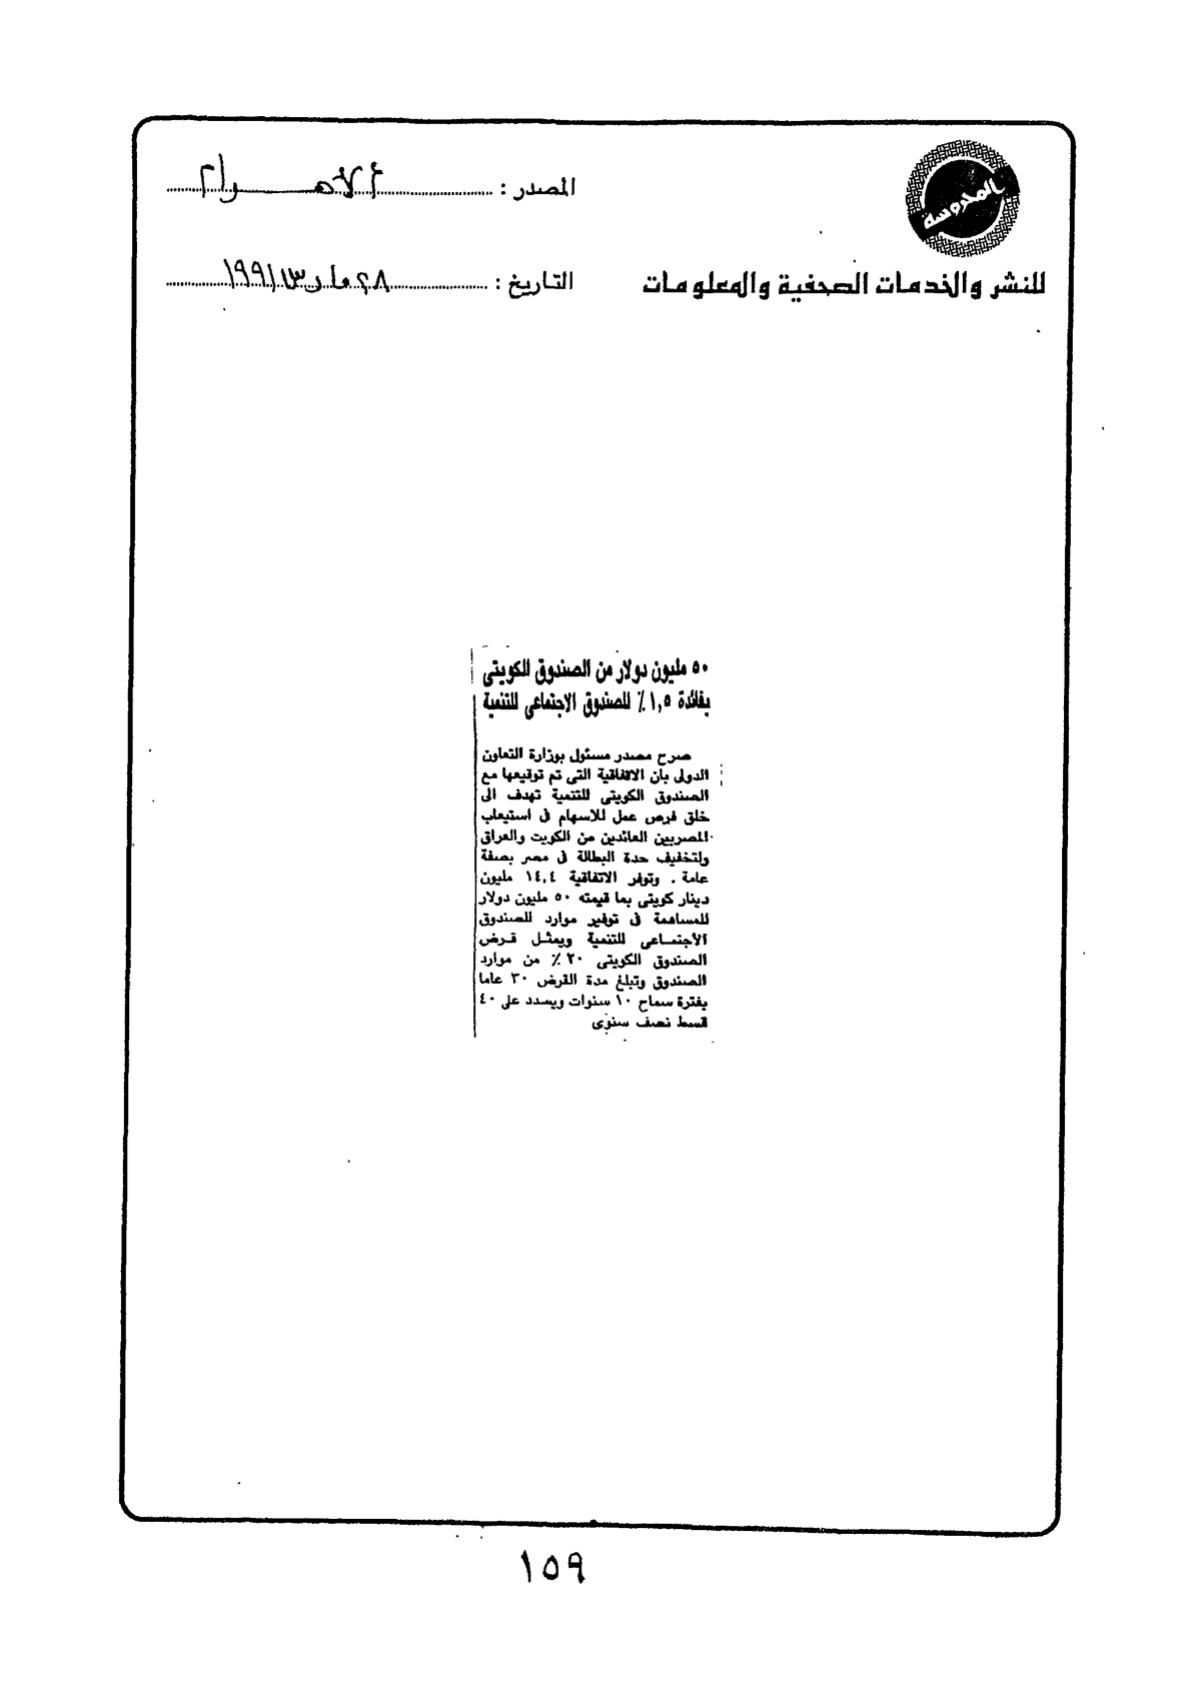 المحروسة
للنشر والخدمات الصحفية والمعلومات
المصدر : الأهرام
التاريخ : ٢٨ مارس ١٩٩١
٥٠ مليون دولار من الصندوق الكويتى
بفائدة ١,٥٪ للصندوق الاجتماعى للتنمية
صرح مصدر مسئول بوزارة التعاون
الدولى بان الاتفاقية التى تم توقيعها مع
الصندوق الكويتى للتنمية تهدف الى
خلق فرص عمل للاسهام فى استيعاب
المصريين العائدين من الكويت والعراق
ولتخفيف حدة البطالة فى مصر بصفة
عامة . وتوفر الاتفاقية ١٤,٤ مليون
دينار كويتى بما قيمته ٥٠ مليون دولار
للمساهمة فى توفير موارد للصندوق
الأجتماعى للتنمية ويمثل قرض
الصندوق الكويتى ٢٠٪ من موارد
الصندوق وتبلغ مدة القرض ٣٠ عاما
بفترة سماح ١٠ سنوات ويسدد على ٤٠
قسط نصف سنوى
١٥٩